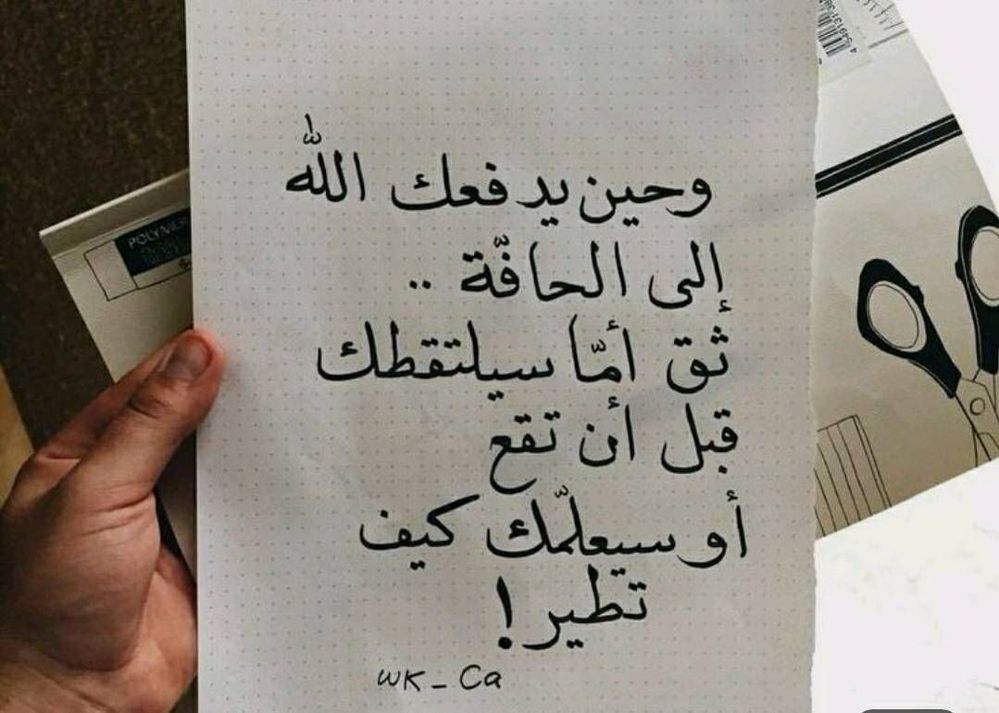 وحين يدفعك الله
إلى الحافّة ..
ثق أمّا سيلتقطك
قبل أن تقع
أو سيعلّمك كيف
تطير !
WK_Ca
POLYMER